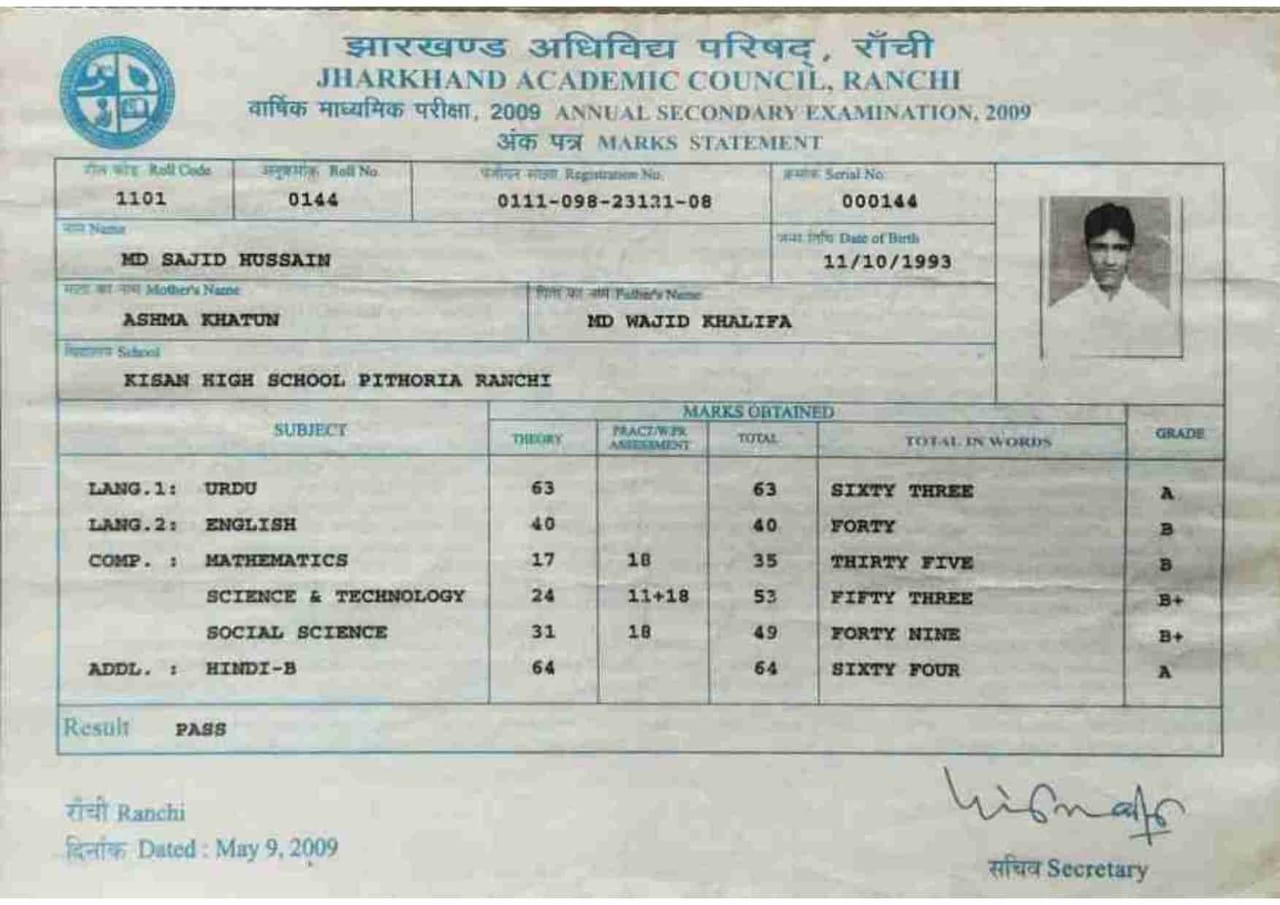 झारखण्ड अधिविद्य परिषद्, राँची
JHARKHAND ACADEMIC COUNCIL, RANCHI
वार्षिक माध्यमिक परीक्षा, 2009 ANNUAL SECONDARY EXAMINATION, 2009
अंक पत्र MARKS STATEMENT
रौल कोड Roll Code अनुक्रमांक Roll No. पंजीयन संख्या Registration No. क्रमांक Serial No.
1101 0144 0111-098-23121-08 000144
नाम Name जन्म तिथि Date of Birth
MD SAJID HUSSAIN 11/10/1993
माता का नाम Mother's Name पिता का नाम Father's Name
ASHMA KHATUN MD WAJID KHALIFA
विद्यालय School
KISAN HIGH SCHOOL PITHORIA RANCHI
SUBJECT MARKS OBTAINED GRADE
THEORY PRACT/W.PR. ASSESSMENT TOTAL TOTAL IN WORDS
LANG.1: URDU 63 63 SIXTY THREE A
LANG.2: ENGLISH 40 40 FORTY B
COMP. : MATHEMATICS 17 18 35 THIRTY FIVE B
SCIENCE & TECHNOLOGY 24 11+18 53 FIFTY THREE B+
SOCIAL SCIENCE 31 18 49 FORTY NINE B+
ADDL. : HINDI-B 64 64 SIXTY FOUR A
Result PASS
राँची Ranchi
दिनांक Dated : May 9, 2009
सचिव Secretary